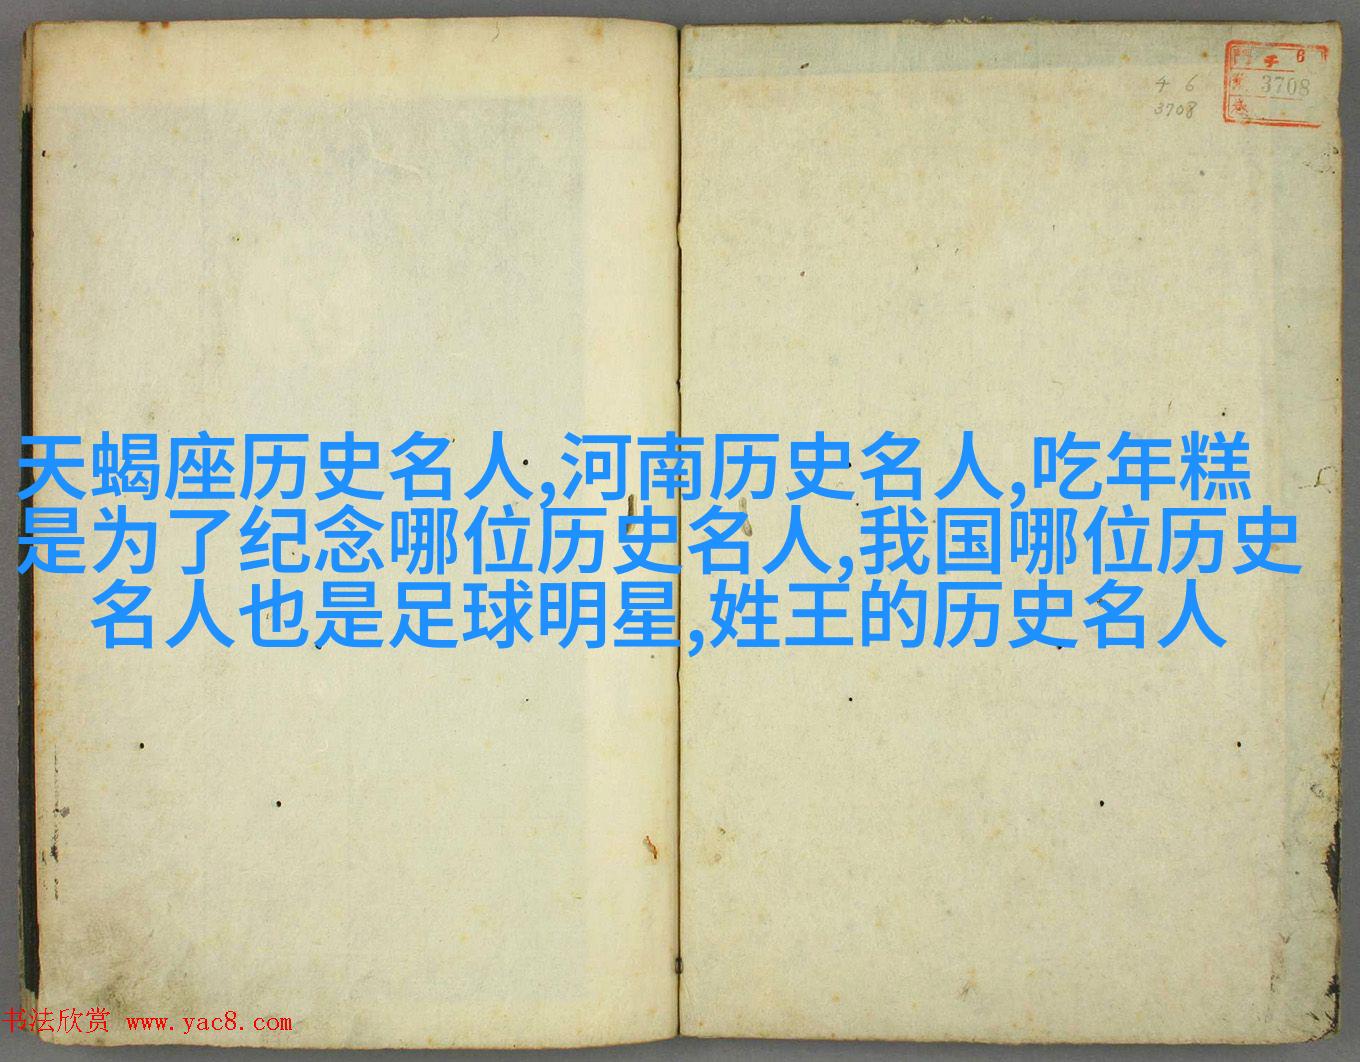 6
3708
4 6
3708
天蝎座历史名人,河南历史名人,吃年糕
是为了纪念哪位历史名人,我国哪位历史
名人也是足球明星,姓王的历史名人
书法欣赏 www.yac8.com